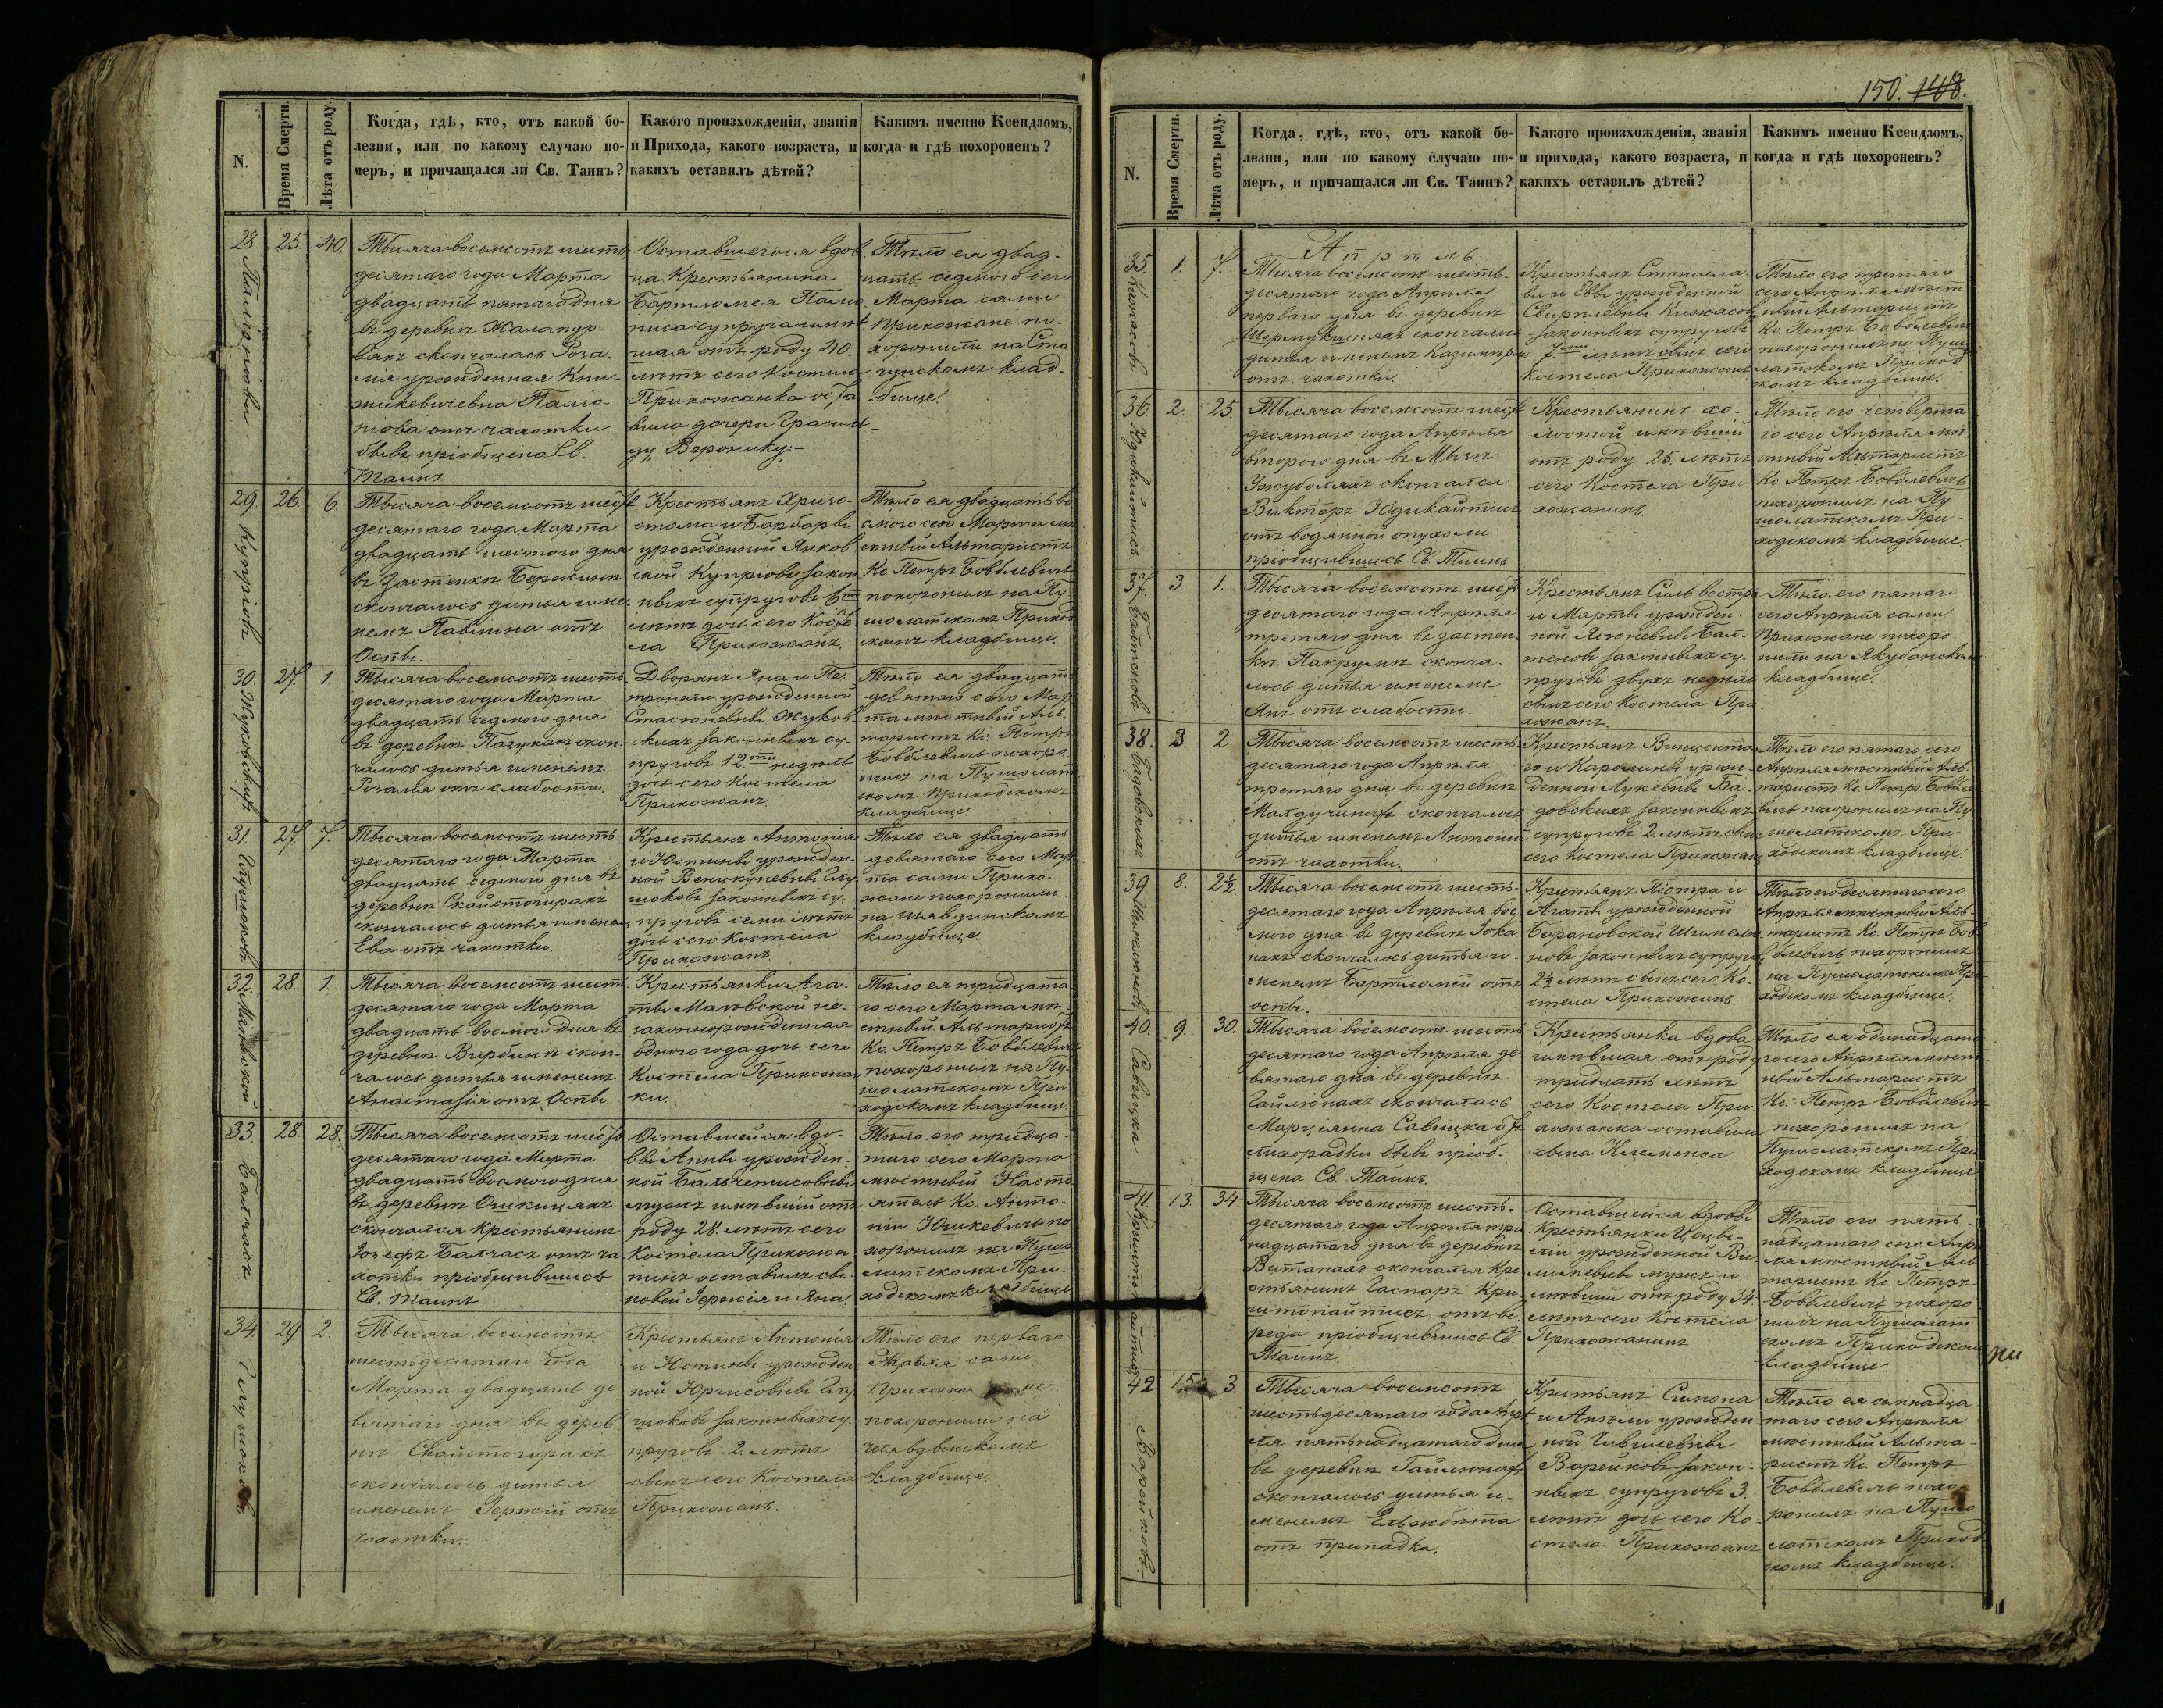 N.
Время Смерти.
Лѣта отъ роду.
Когда, гдѣ, кто, отъ какой бо-
лезни, или по какому случаю по-
меръ, и причащался ли Св. Таинъ?
Какого произхожденія, званія
и Прихода, какого возраста, и
какихъ оставилъ дѣтей?
Какимъ именно Ксендзомъ,
когда и гдѣ похороненъ?
28. 25. 40.
Тысяча восемсотъ шесть
десятаго года Марта
двадцать пятаго дня
въ деревнѣ
скончалась Роза-
лія урожденная
отъ чахотки
бывъ пріобщена Св.
Таинъ
Оставшегося вдов-
ца Крестьянина
Бартломея
супруга имѣв-
шая отъ роду 40.
лѣтъ сего Костела
Прихожанка оста
вила дочери
ду, Веронику,
Тѣло ея двад-
цать седмого сего
Марта сами
Прихожане по-
хоронили на
клад-
бище.
29. 26. 6.
Купріовъ
Тысяча восемсотъ шест
десятаго года Марта
двадцать шестого дня
въ Застенкѣ
скончалось дитья име
немъ Павлина отъ
Оспы.
Крестьянъ Хризо-
стома и Барбары
урожденной Янков
ской Купріовъ закон
ныхъ супруговъ 6ти
лѣтъ дочь сего Косте
ла Прихожанъ.
Тѣло ея двадцать во
смого сего Марта мѣ
стный Альтаристъ
Кс. Петръ Бовблевичъ
похоронилъ на Пу
шолатскомъ Приход
скомъ кладбище.
30. 27. 1.
Жуковскихъ
Тысяча восемсотъ шесть
десятаго года Марта
двадцать седмого дня
въ деревнѣ скон-
чалось дитья именемъ
Розалія отъ слабости.
Дворянъ Яна и Пе-
тронели урожденной
Жуков
скихъ законныхъ су-
пруговъ 12.ти недѣль
дочь сего Костела
Прихожанъ.
Тѣло ея двадцать
девятаго сего Мар
та мѣстный Аль-
таристъ Кс. Петръ
Бовблевичъ похоро
нилъ на Пушолат
скомъ Приходскомъ
кладбище.
31. 27. 7.
Тысяча восемсотъ шесть-
десятаго года Марта
двадцать седмого дня въ
деревнѣ Скайстогирахъ
скончалось дитья именемъ
Ева отъ чахотки.
Крестьянъ Антонія
и Юстины урожден-
ной
законныхъ су-
пруговъ семи лѣтъ
дочь сего Костела
Прихожанъ
Тѣло ея двадцать
девятаго сего Мар
та сами Прихо-
жане похоронили
на
кладбище
32. 28. 1.
Тысяча восемсотъ шест
десятаго года Марта
двадцать восмого дня въ
деревнѣ Вирбинѣ скон-
чалось дитья именемъ
Анастазія отъ Оспы.
Крестьянки Ага-
ты не-
законнорожденная
одного года дочь сего
Костела Прихожан
ки.
Тѣло ея тридцата
го сего Марта мѣ
стный Альтаристъ
Кс. Петръ Бовблевичъ
похоронилъ на Пу-
шолатскомъ При
ходскомъ кладбище
33. 28. 28.
Балчасъ
Тысяча восемсотъ шесть
десятаго года Марта
двадцать восмого дня
въ деревнѣ
скончался Крестьянинъ
Іозефъ Балчасъ отъ ча
хотки пріобщившись
Св. Таинъ
Оставшейся вдо-
вы Анны урожден-
ной
мужъ имѣвшій отъ
роду 28. лѣтъ сего
Костела Прихожа
нинъ оставилъ сы-
новей Іержія и Яна.
Тѣло его тридца-
таго сего Марта
мѣстный Насто
ятель Кс. Анто-
ній Юшкевичъ по
хоронилъ на Пушо
латскомъ При-
ходскомъ кладбище
34. 29. 2.
Тысяча восемсотъ
шестьдесятаго года
Марта двадцать де
вятаго дня въ дерев
нѣ Скайстогирахъ
скончалось дитья
именемъ Іержій отъ
чахотки.
Крестьянъ Антонія
и Юстины урожден
ной
законныхъ су-
пруговъ 2. лѣтъ
сынъ сего Костела
Прихожанъ.
Тѣло его перваго
Апрѣля сами
похоронили на
кладбище.
150. 148.
N.
Время Смерти.
Лѣта отъ роду.
Когда, гдѣ, кто, отъ какой бо-
лезни, или по какому случаю по-
меръ, и причащался ли Св. Таинъ?
Какого произхожденія, званія
и прихода, какого возраста, и
какихъ оставилъ дѣтей?
Какимъ именно Ксендзомъ,
когда и гдѣ похороненъ?
Апрѣль.
35. 1. 7.
Тысяча восемсотъ шесть-
десятаго года Апрѣля
перваго дня въ деревнѣ
скончалось
дитья именемъ Казимиръ
отъ чахотки.
Крестьянъ Станисла-
ва и Евы урожденной
законныхъ супруговъ
7.ми лѣтъ сынъ сего
Костела Прихожанъ
Тѣло его третяго
сего Апрѣля мѣст
ный Альтаристъ
Кс. Петръ Бовблевичъ
похоронилъ на Пушо
латскомъ Приход
скомъ кладбище.
36. 2. 25
Юдикайтисъ
Тысяча восемсотъ шест
десятаго года Апрѣля
второго дня въ Мызѣ
скончался
Викторъ Юдикайтисъ
отъ водянной опухоли
пріобщившись Св. Таинъ
Крестьянинъ хо-
лостой имѣвшій
отъ роду 25. лѣтъ
сего Костела При-
хожанинъ.
Тѣло его четверта
го сего Апрѣля мѣ
стный Альтаристъ
Кс. Петръ Бовблевичъ
похоронилъ на Пу
шолатскомъ При-
ходскомъ кладбище.
37. 3 1.
Тысяча восемсотъ шесть
десятаго года Апрѣля
третяго дня въ застен-
кѣ сконча-
лось дитья именемъ
Янъ отъ слабости.
Крестьянъ Сильвестра
и Марты урожден-
ной
законныхъ су-
пруговъ двухъ недѣль
сынъ сего Костела При
хожанъ.
Тѣло его пятаго
сего Апрѣля сами
Прихожане похоро-
нили на
кладбище.
38. 3. 2.
Бадовскихъ
Тысяча восемсотъ шесть
десятаго года Апрѣля
третяго дня въ деревнѣ
скончалось
дитья именемъ Антоній
отъ чахотки.
Крестьянъ Винцента
го и Каролины урож-
денной Ба-
довскихъ законныхъ
супруговъ 2. лѣтъ сынъ
сего Костела Прихожанъ
Тѣло его пятаго сего
Апрѣля мѣстный Аль-
таристъ Кс. Петръ Бовбле
вичъ похоронилъ на Пу
шолатскомъ При-
ходскомъ кладбище.
39. 8. 2½.
Тысяча восемсотъ шесть-
десятаго года Апрѣля вос
мого дня въ деревнѣ
скончалось дитья и-
менемъ Бартломей отъ
оспы.
Крестьянъ Піотра и
Агаты урожденной
Барановской
законныхъ супруговъ
2½ лѣтъ сынъ сего Ко-
стела Прихожанъ.
Тѣло его десятаго сего
Апрѣля мѣстный Аль-
таристъ Кс. Петръ Бов
блевичъ похоронилъ
на Пушолатскомъ При
ходскомъ кладбище.
40. 9. 30.
Савицка
Тысяча восемсотъ шесть
десятаго года Апрѣля де
вятаго дня въ деревнѣ
Гайлюнахъ скончалась
Марціянна Савицка отъ
лихорадки бывъ пріоб-
щена Св. Таинъ.
Крестьянка вдова
имѣвшая отъ роду
тридцать лѣтъ
сего Костела При-
хожанка оставила
сына Клеменса.
Тѣло ея одинадцата
го сего Апрѣля мѣст-
ный Альтаристъ
Кс. Петръ Бовблевичъ
похоронилъ на
Пушолатскомъ При
ходскомъ кладбище
41. 13. 34.
Тысяча восемсотъ шесть-
десятаго года Апрѣля три
надцатаго дня въ деревнѣ
скончался Кре
стьянинъ Гаспаръ Кри
штопайтисъ отъ ве-
реда пріобщившись Св.
Таинъ.
Оставшейся вдовы
Крестьянки Цецы-
ліи урожденной
мужъ и-
мѣвшій отъ роду 34.
лѣтъ сего Костела
Прихожанинъ
Тѣло его пять-
надцатаго сего Апрѣ
ля мѣстный Аль
таристъ Кс. Петръ
Бовблевичъ похоро
нилъ на Пушолат
скомъ Приходском
кладбище.
42 15. 3.
Варейковъ.
Тысяча восемсотъ
шестьдесятаго года Апрѣ
ля пятьнадцатаго дня
въ деревнѣ Гайлюнахъ
скончалось дитья и-
менемъ Ельжбѣта
отъ припадка.
Крестьянъ Симона
и Анѣли урожден
ной
Варейковъ закон-
ныхъ супруговъ 3.
лѣтъ дочь сего Ко-
стела Прихожанъ
Тѣло ея семнадца
таго сего Апрѣля
мѣстный Альта-
ристъ Кс. Петръ
Бовблевичъ похо-
ронилъ на Пушо
латскомъ Приход
скомъ кладбище.